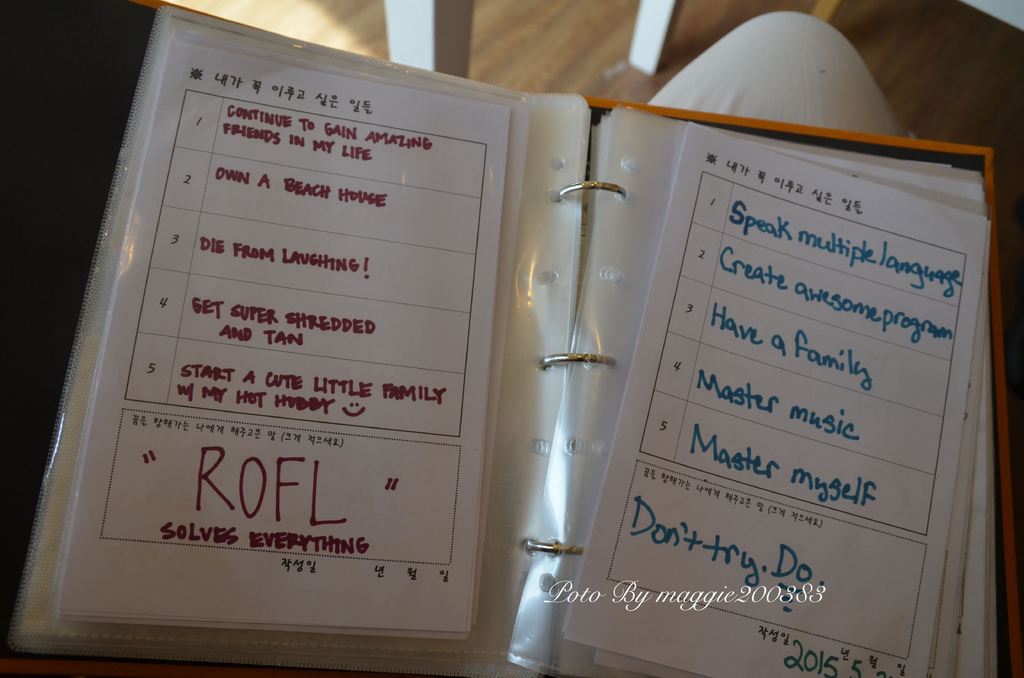 ※ 내가 꼭 이루고 싶은 일들
1 CONTINUE TO GAIN AMAZING
FRIENDS IN MY LIFE
2 OWN A BEACH HOUSE
3 DIE FROM LAUGHING!
4 GET SUPER SHREDDED
AND TAN
5 START A CUTE LITTLE FAMILY
W/ MY HOT HUBBY
꿈을 향해가는 나에게 해주고픈 말 (크게 적으세요)
" ROFL "
SOLVES EVERYTHING
작성일 년 월 일
※ 내가 꼭 이루고 싶은 일들
1 Speak multiple language
2 Create awesome program
3 Have a family
4 Master music
5 Master myself
꿈을 향해가는 나에게 해주고픈 말 (크게 적으세요)
Don't try. Do.
작성일 년 월 일
2015. 5.
Poto By maggie200383